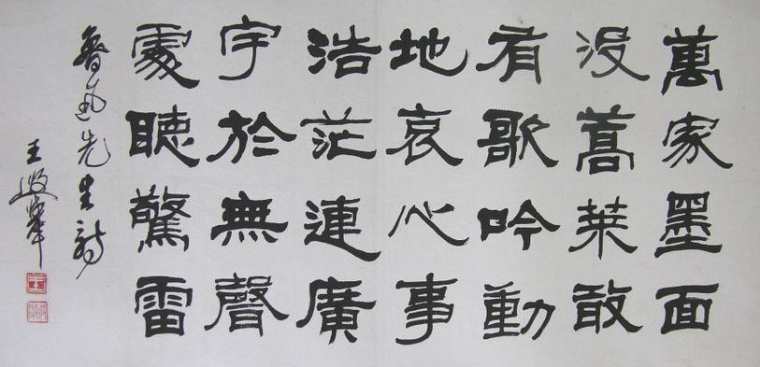 萬家墨面
没蒿萊敢
有歌吟動
地哀心事
浩茫連廣
宇於無聲
處聽驚雷
魯迅先生詩
王遐舉